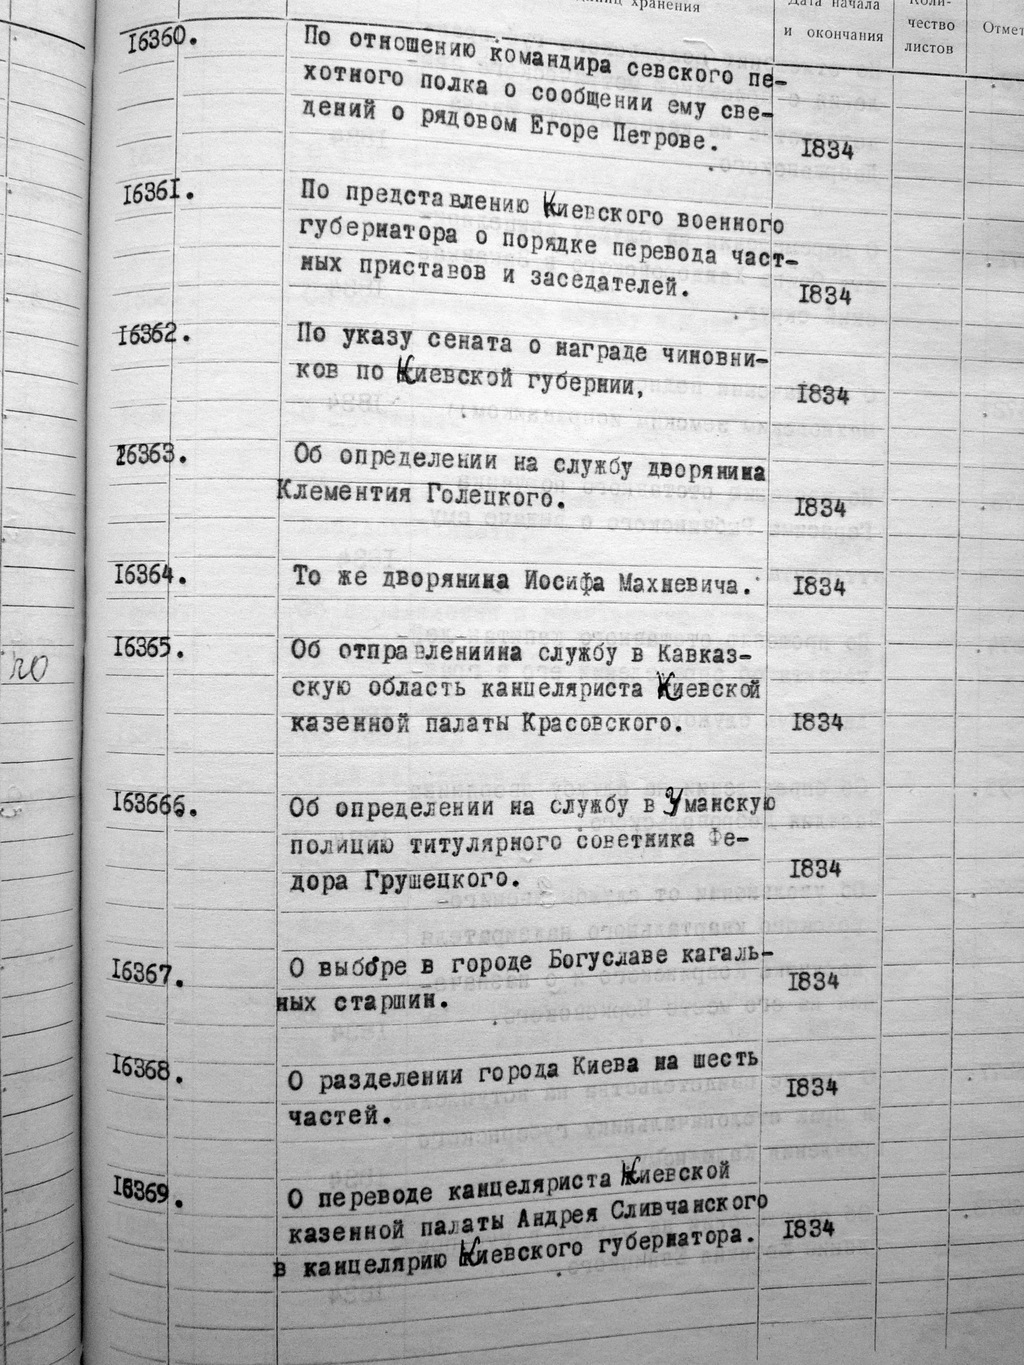 хранения
Дата начала
и окончания
Коли-
чество
листов
Отмет
16360.
По отношению командира севского пе-
хотного полка о сообщении ему све-
дений о рядовом Егоре Петрове.
1834
16361.
По представлению Киевского военного
губернатора о порядке перевода част-
ных приставов и заседателей.
1834
16362.
По указу сената о награде чиновни-
ков по Киевской губернии,
1834
16363.
Об определении на службу дворянина
Клементия Голецкого.
1834
16364.
То же дворянина Иосифа Махневича.
1834
16365.
Об отправлениина службу в Кавказ-
скую область канцеляриста Киевской
казенной палаты Красовского.
1834
163666.
Об определении на службу в Уманскую
полицию титулярного советника Фе-
дора Грушецкого.
1834
16367.
О выборе в городе Богуславе кагаль-
ных старшин.
1834
16368.
О разделении города Киева на шесть
частей.
1834
16369.
О переводе канцеляриста Киевской
казенной палаты Андрея Сливчанского
в канцелярию Киевского губернатора.
1834